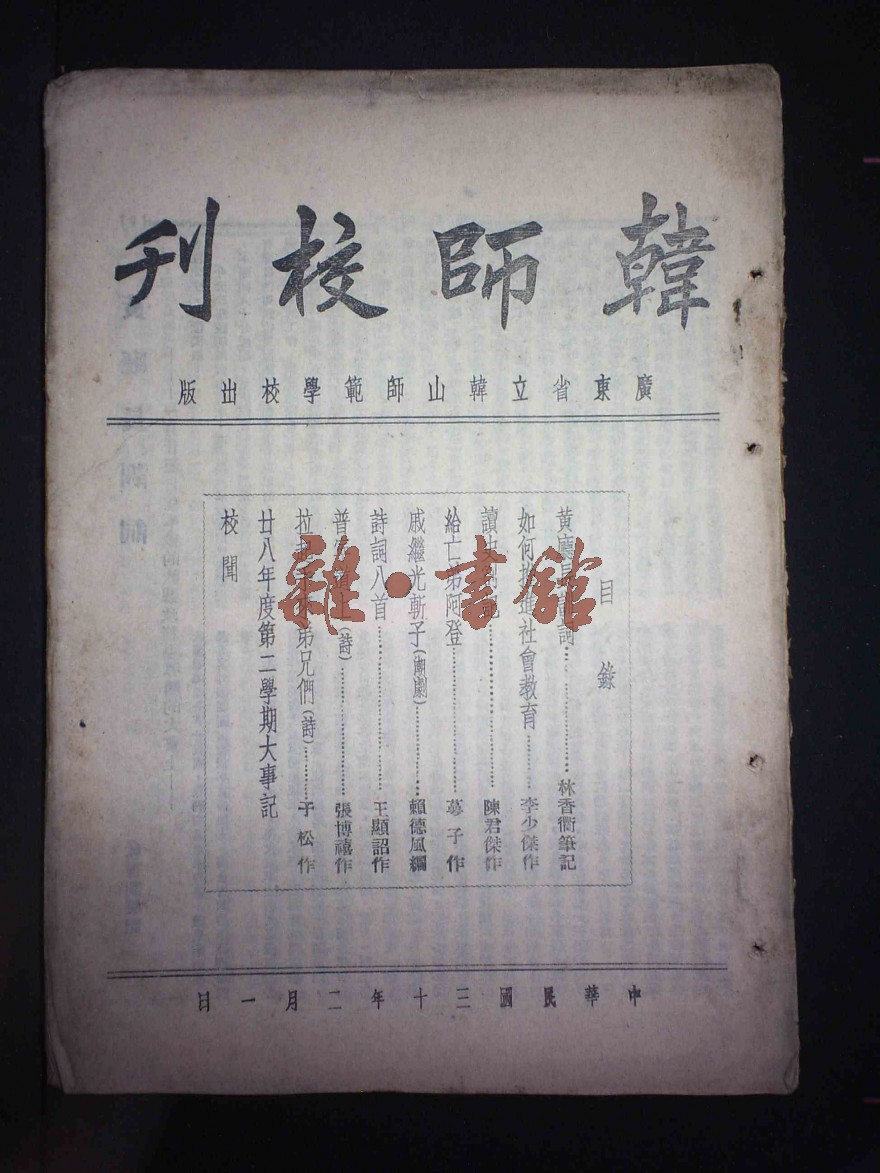 韓師校刊
廣東省立韓山師範學校出版
目錄
黃廳長訓詞……林香衢筆記
如何推進社會教育……李少傑作
讀史……陳君傑作
給亡弟阿登……夢子作
戚繼光斬子(潮劇)……賴德風編
詩詞八首……王顯詔作
普……(詩)……張博禧作
拉起手來弟兄們(詩)……于松作
廿八年度第二學期大事記
校聞
中華民國三十年二月一日
雜·書館